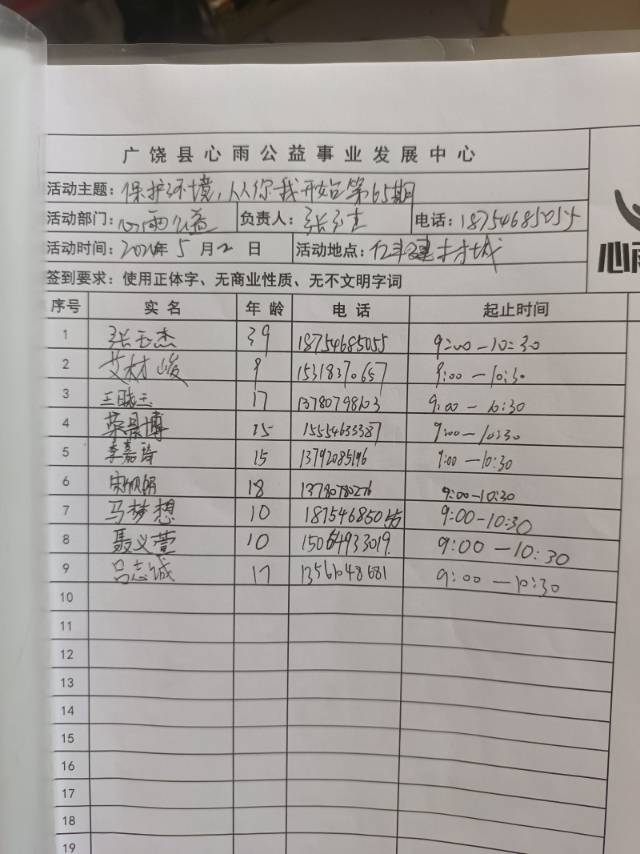 广饶县心雨公益事业发展中心
活动主题：保护环境，从你我开始第65期
活动部门：心雨公益 负责人：张玉杰 电话：18754685055
活动时间：2021年5月2日 活动地点：亿丰建材城
心雨
签到要求：使用正体字、无商业性质、无不文明字词
序号 实名 年龄 电话 起止时间
1 张玉杰 39 18754685055 9:00-10:30
2 艾材峻 9 15318370657 9:00-10:30
3 王晓玉 17 13780798103 9:00-10:30
4 荣景博 15 15554633387 9:00-10:30
5 李嘉琦 15 13792085196 9:00-10:30
6 18 13780780276 9:00-10:30
7 马梦想 10 187546850 9:00-10:30
8 聂义萱 10 15064933019 9:00-10:30
9 吕志诚 17 13561048681 9:00-10:30
10
11
12
13
14
15
16
17
18
19